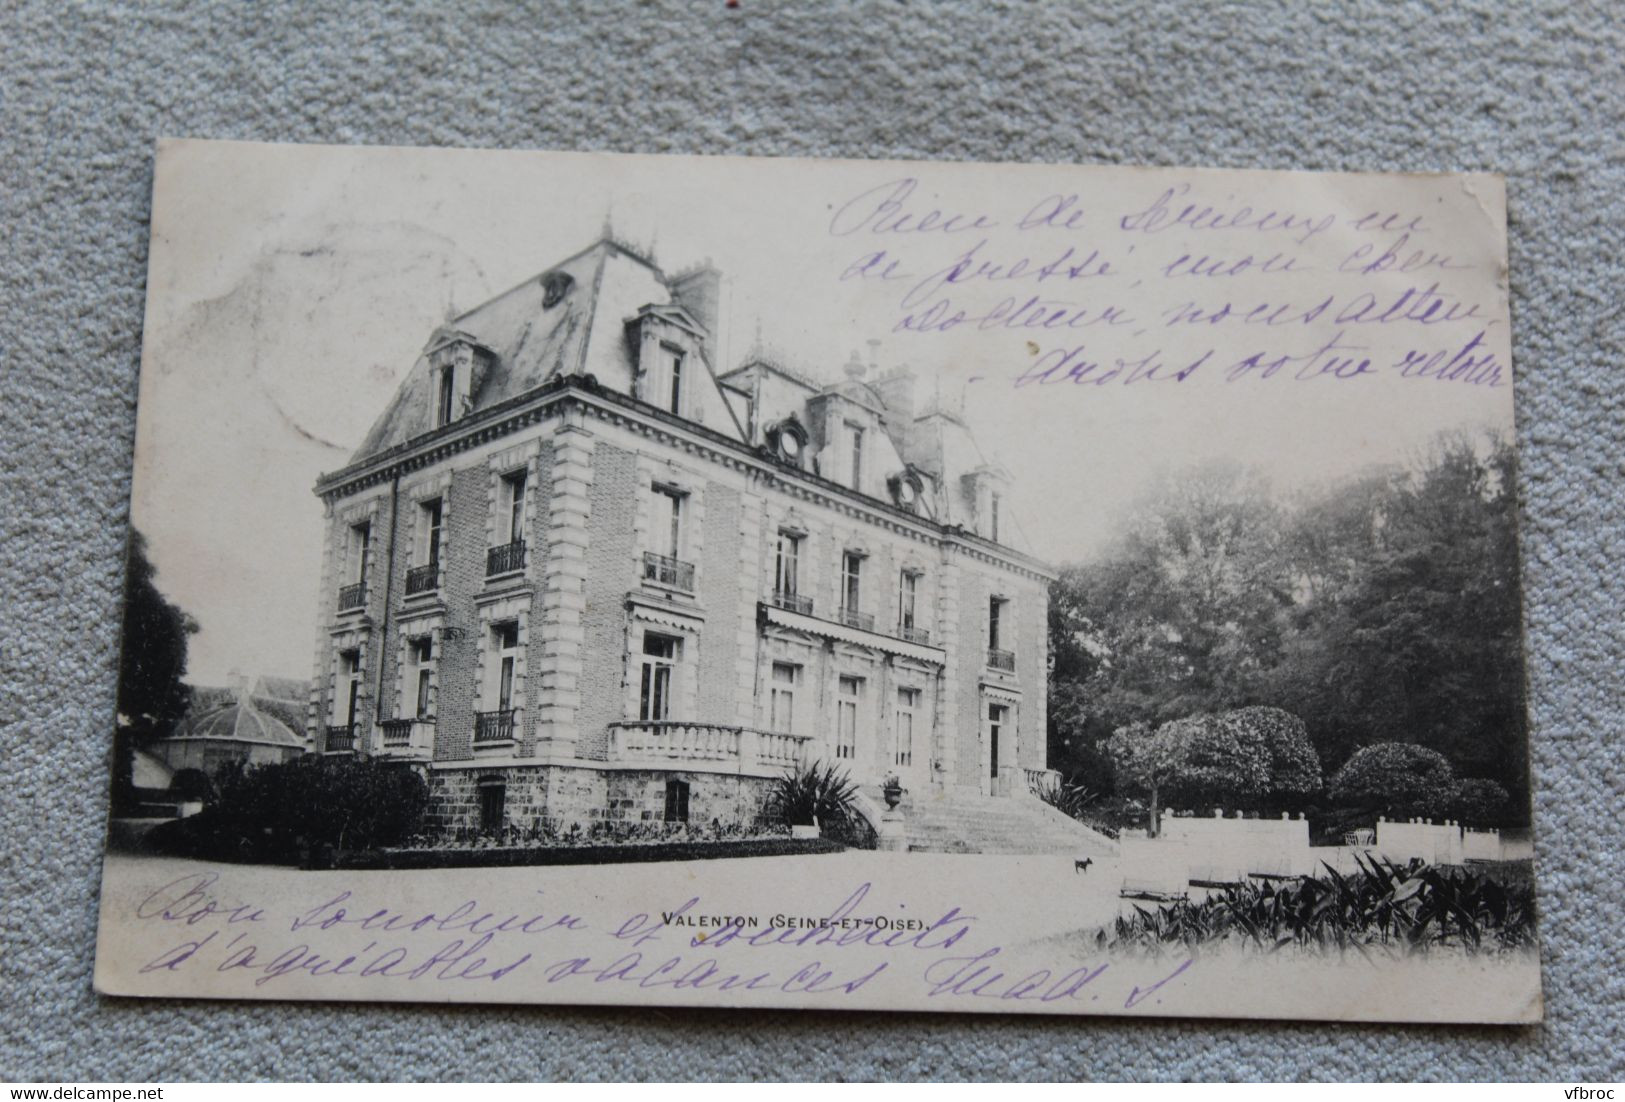 Rien de Sérieux ni
de pressé, mon cher
Docteur, nous atten-
-drons votre retour
VALENTON (SEINE-ET-OISE).
Bon souvenir et souhaits
d'agréables vacances Mad. S.
delcampe.net
vfbroc